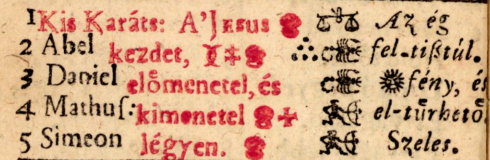 1 Kis Karáts: A' JESUS Az ég
2 Abel kezdet, fel-tißtúl.
3 Daniel elömenetel, és fény, és
4 Mathuſ: kimenetel el-türhetö
5 Simeon légyen. Szeles.